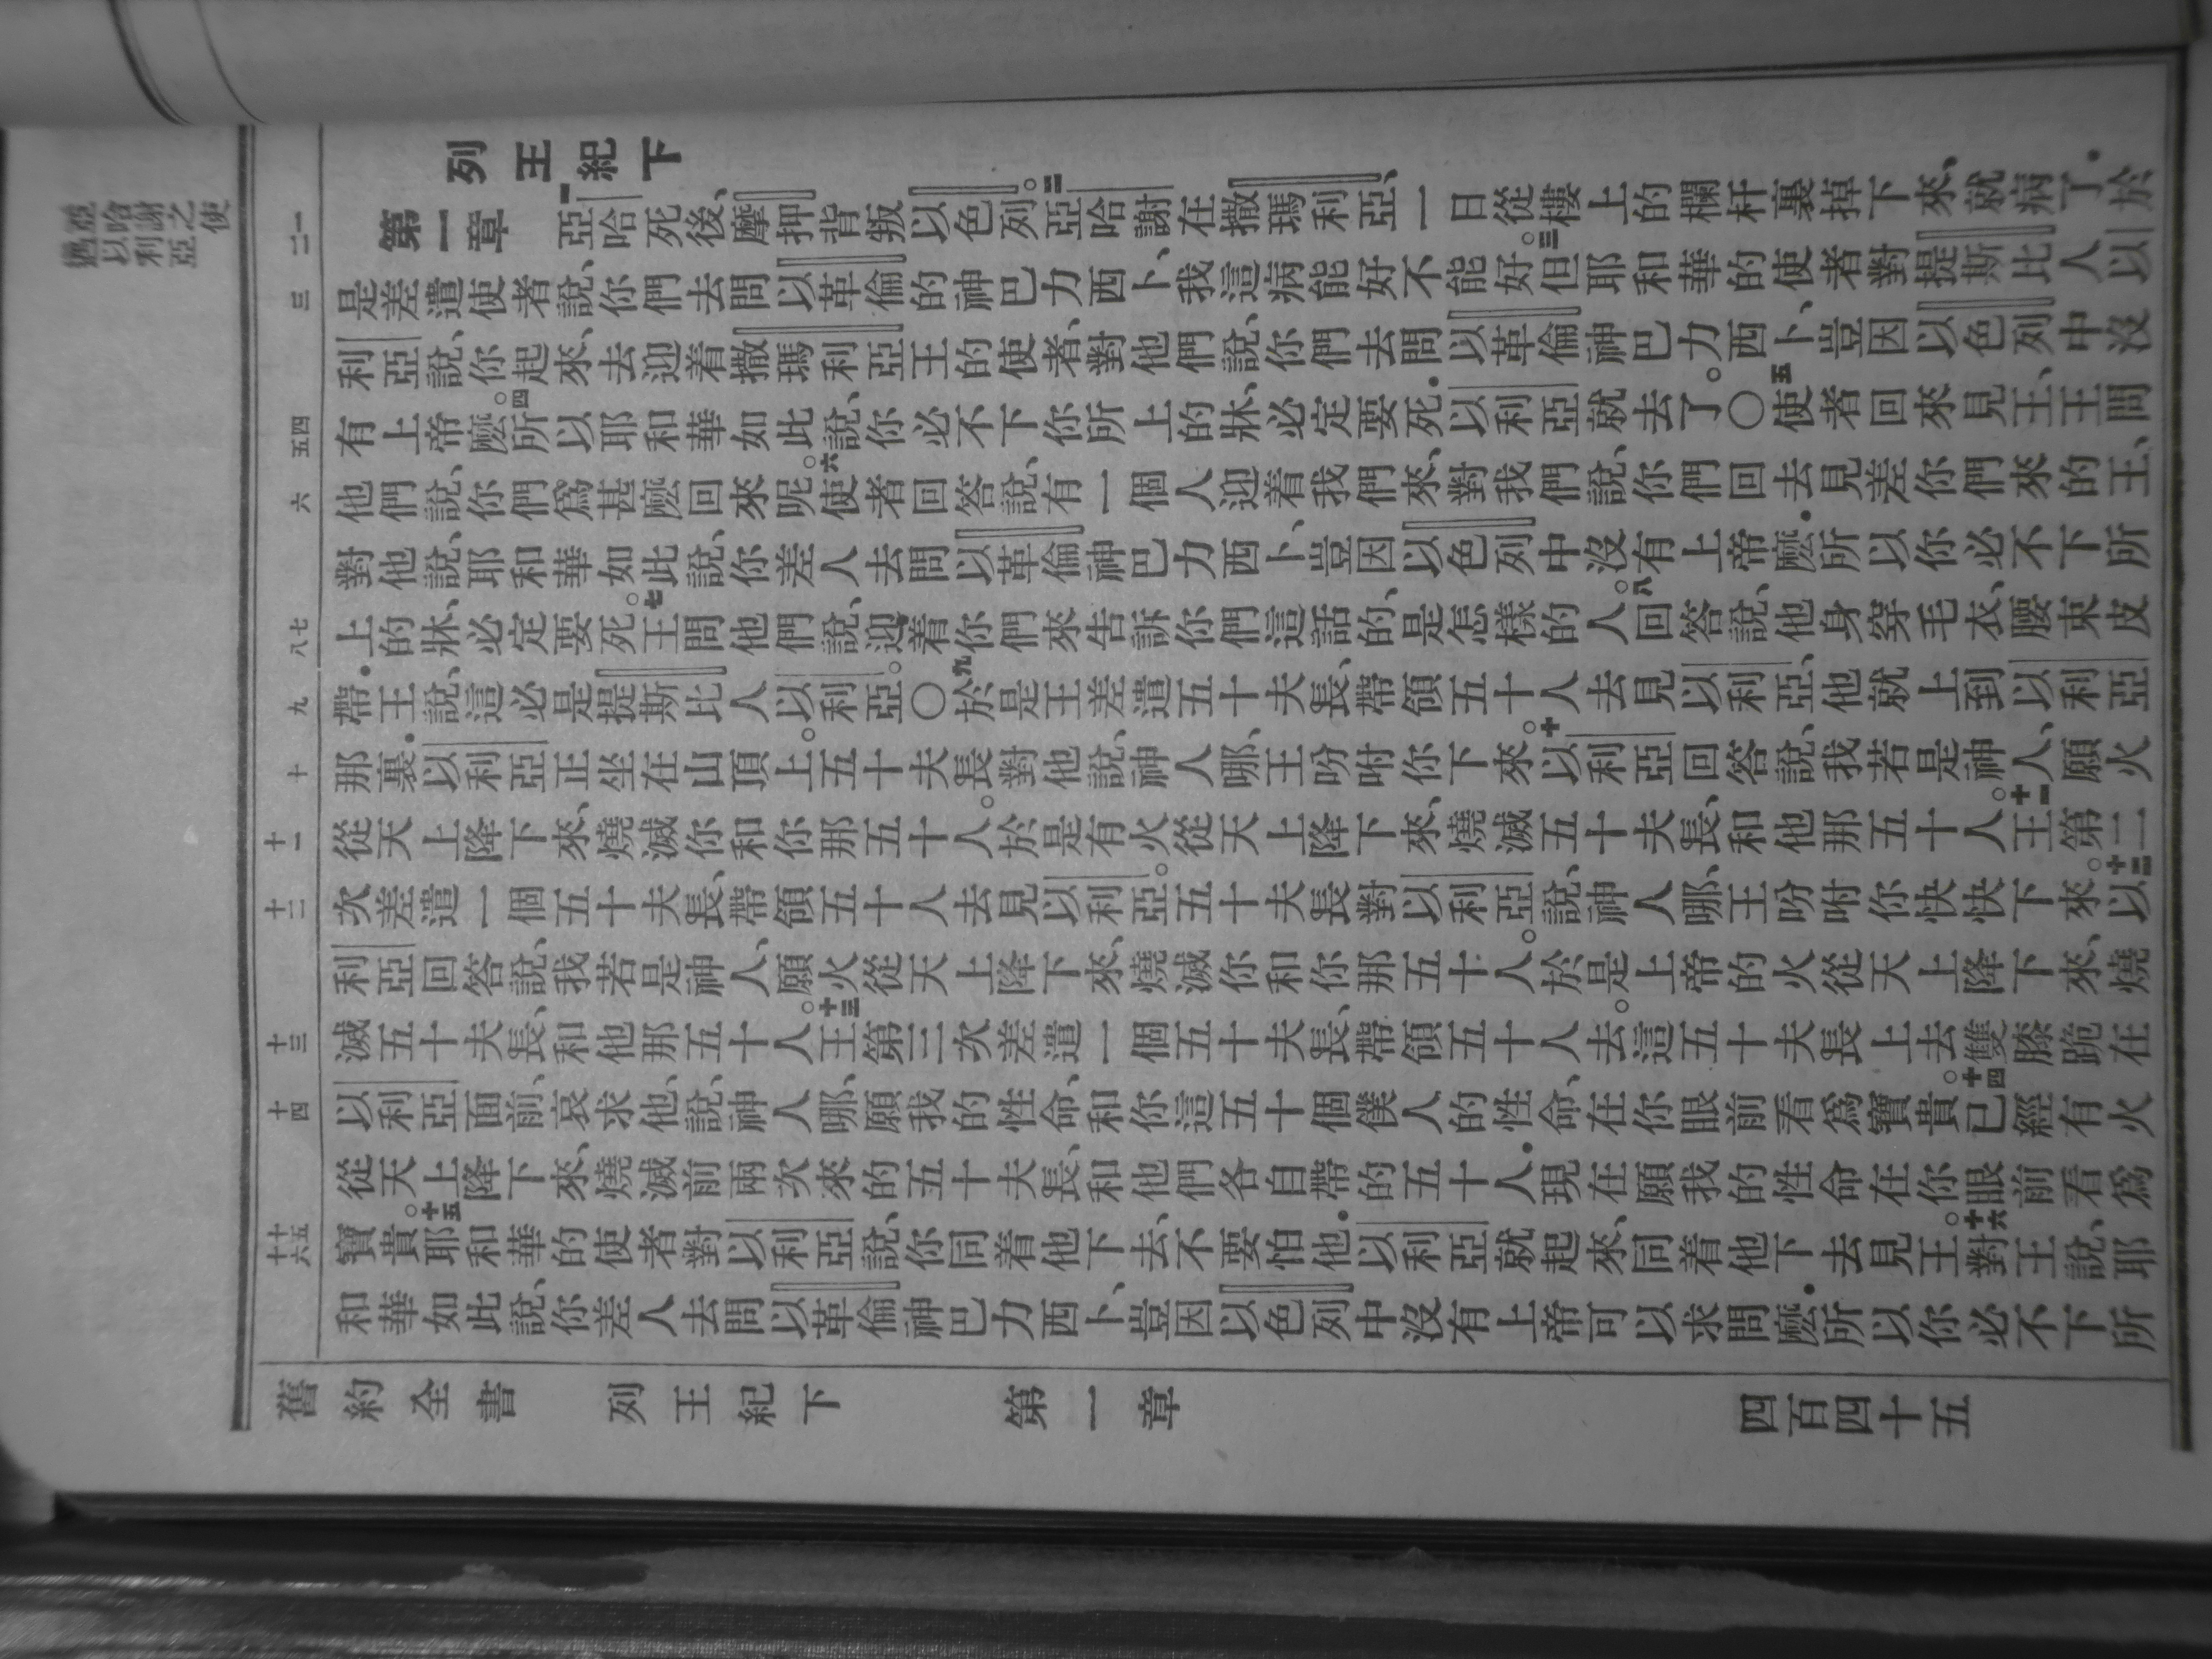 列王紀下
第一章
亞哈死後、摩押背叛以色列。二亞哈謝在撒瑪利亞、一日從樓上的欄杆裏掉下來、就病了．於
是差遣使者說、你們去問以革倫的神巴力西卜、我這病能好不能好。三但耶和華的使者對提斯比人以
利亞說、你起來、去迎着撒瑪利亞王的使者、對他們說、你們去問以革倫神巴力西卜、豈因以色列中沒
有上帝麼。四所以耶和華如此說、你必不下你所上的牀、必定要死．以利亞就去了。○五使者回來見王、王問
他們說、你們爲甚麼回來呢。六使者回答說、有一個人迎着我們來、對我們說、你們回去見差你們來的王、
對他說、耶和華如此說、你差人去問以革倫神巴力西卜、豈因以色列中沒有上帝麼．所以你必不下所
上的牀、必定要死。七王問他們說、迎着你們來告訴你們這話的、是怎樣的人。八回答說、他身穿毛衣、腰束皮
帶．王說、這必是提斯比人以利亞。○九於是王差遣五十夫長、帶領五十人去見以利亞、他就上到以利亞
那裏．以利亞正坐在山頂上。五十夫長對他說、神人哪、王吩咐你下來。十以利亞回答說、我若是神人、願火
從天上降下來、燒滅你和你那五十人。於是有火從天上降下來、燒滅五十夫長、和他那五十人。十一王第二
次差遣一個五十夫長、帶領五十人去見以利亞。五十夫長對以利亞說、神人哪、王吩咐你快快下來。十二以
利亞回答說、我若是神人、願火從天上降下來、燒滅你和你那五十人。於是上帝的火從天上降下來、燒
滅五十夫長、和他那五十人。十三王第三次差遣一個五十夫長、帶領五十人去。這五十夫長上去、雙膝跪在
以利亞面前、哀求他、說、神人哪、願我的性命、和你這五十個僕人的性命、在你眼前看爲寶貴。十四已經有火
從天上降下來、燒滅前兩次來的五十夫長、和他們各自帶的五十人．現在願我的性命在你眼前看爲
寶貴。十五耶和華的使者對以利亞說、你同着他下去、不要怕他．以利亞就起來、同着他下去見王。十六對王說、耶
和華如此說、你差人去問以革倫神巴力西卜、豈因以色列中沒有上帝可以求問麼．所以你必不下所
舊約全書 列王紀下 第一章 四百四十五
亞哈謝之使
遇以利亞
一
二
三
四
五
六
七
八
九
十
十一
十二
十三
十四
十五
十六